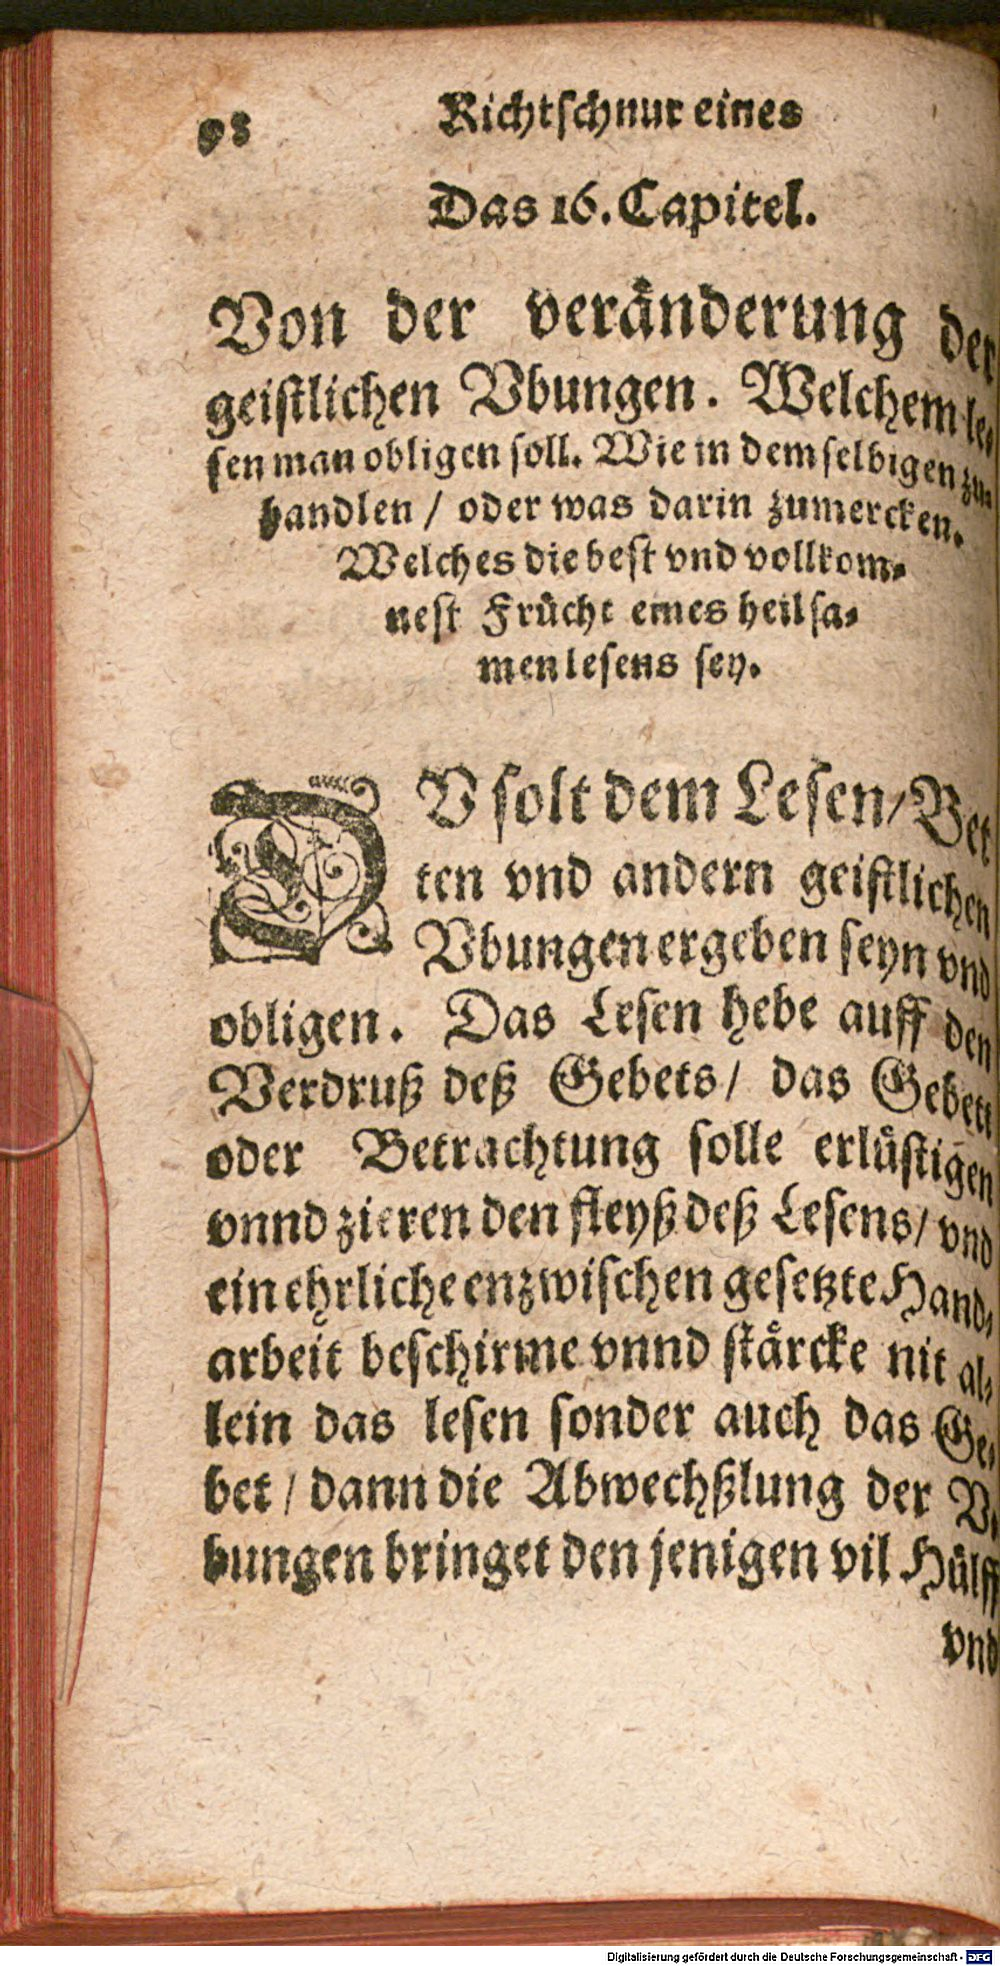 98 Richtschnur eines
Das 16. Capitel.
Von der veränderung der
geistlichen Vbungen. Welchem le-
sen man obligen soll. Wie in dem selbigen zu-
handlen / oder was darin zumercken.
Welches die best vnd vollkom-
nest Frücht eines heilsa-
men lesens sey.
DV solt dem Lesen / Bet
ten vnd andern geistlichen
Vbungen ergeben seyn vnd
obligen. Das Lesen hebe auff den
Verdruß deß Gebets / das Gebett
oder Betrachtung solle erlüstigen
vnnd zieren den fleyß deß Lesens / vnd
ein ehrliche enzwischen gesetzte Hand-
arbeit beschirme vnnd stärcke nit al-
lein das lesen sonder auch das Ge-
bet / dann die Abwechßlung der V-
bungen bringet den jenigen vil Hülff
vnd
Digitalisierung gefördert durch die Deutsche Forschungsgemeinschaft - DFG